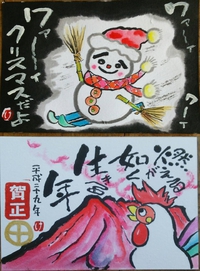 ワァーィ
ワーィ
ワァーィ
クリスマスだよ
燃えるが
如く
生きる
年
平成二十九年
賀正